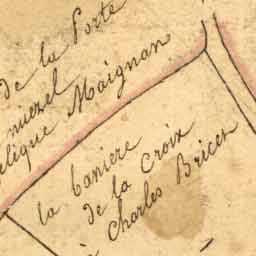 de la Porte
nuezel
elique Maignan
la taniere
de la Croix
à Charles Bricet